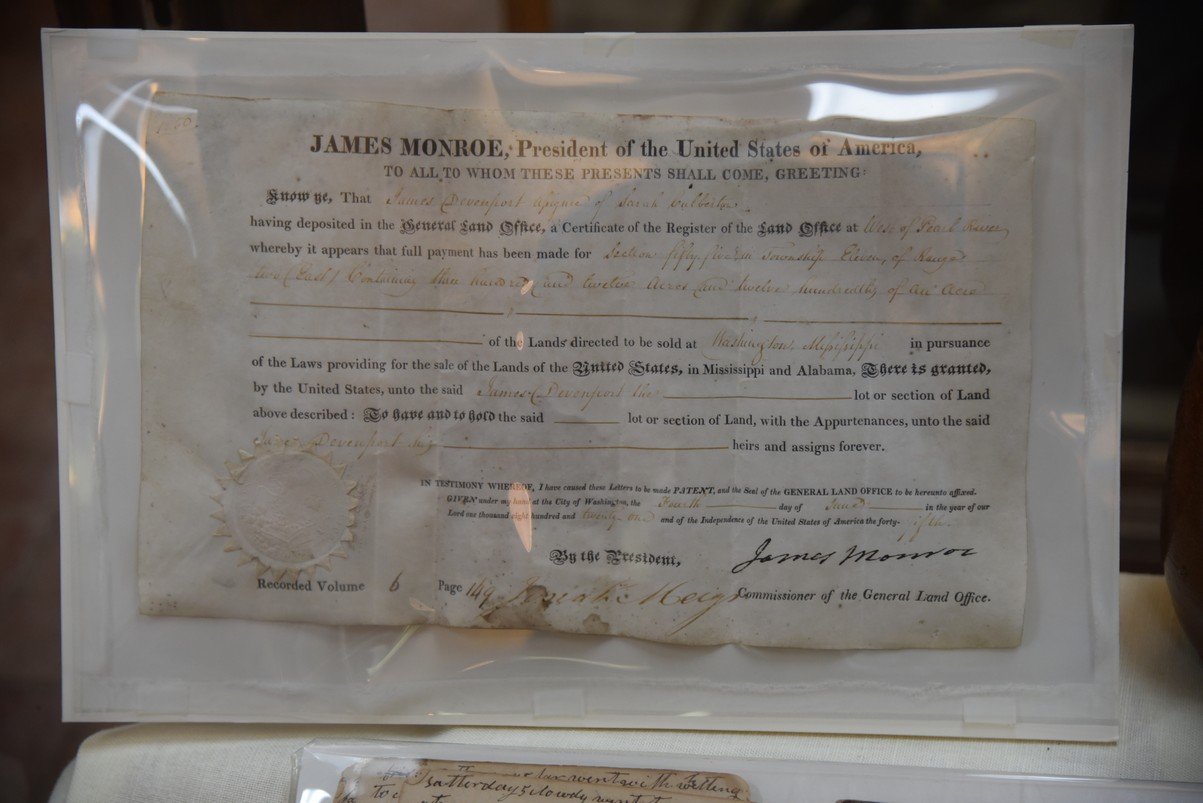 JAMES MONROE, President of the United States of America,
TO ALL TO WHOM THESE PRESENTS SHALL COME, GREETING:
Know ye, That James Devenport Assignee of Sarah
having deposited in the General Land Office, a Certificate of the Register of the Land Office at West of Pearl River
whereby it appears that full payment has been made for Section fifty five in Township Eleven, of Range
two (East) Containing three hundred and twelve Acres and twelve hundredths of an Acre
of the Lands directed to be sold at Washington Mississippi in pursuance
of the Laws providing for the sale of the Lands of the United States, in Mississippi and Alabama, There is granted,
by the United States, unto the said James Devenport the lot or section of Land
above described: To have and to hold the said lot or section of Land, with the Appurtenances, unto the said
James Devenport his heirs and assigns forever.
IN TESTIMONY WHEREOF, I have caused these Letters to be made PATENT, and the Seal of the GENERAL LAND OFFICE to be hereunto affixed.
GIVEN under my hand at the City of Washington, the Fourth day of June in the year of our
Lord one thousand eight hundred and twenty one and of the Independence of the United States of America the forty-fifth.
By the President, James Monroe
Recorded Volume 6 Page 149 Josiah Meigs Commissioner of the General Land Office.
satterday 5 clowdy went